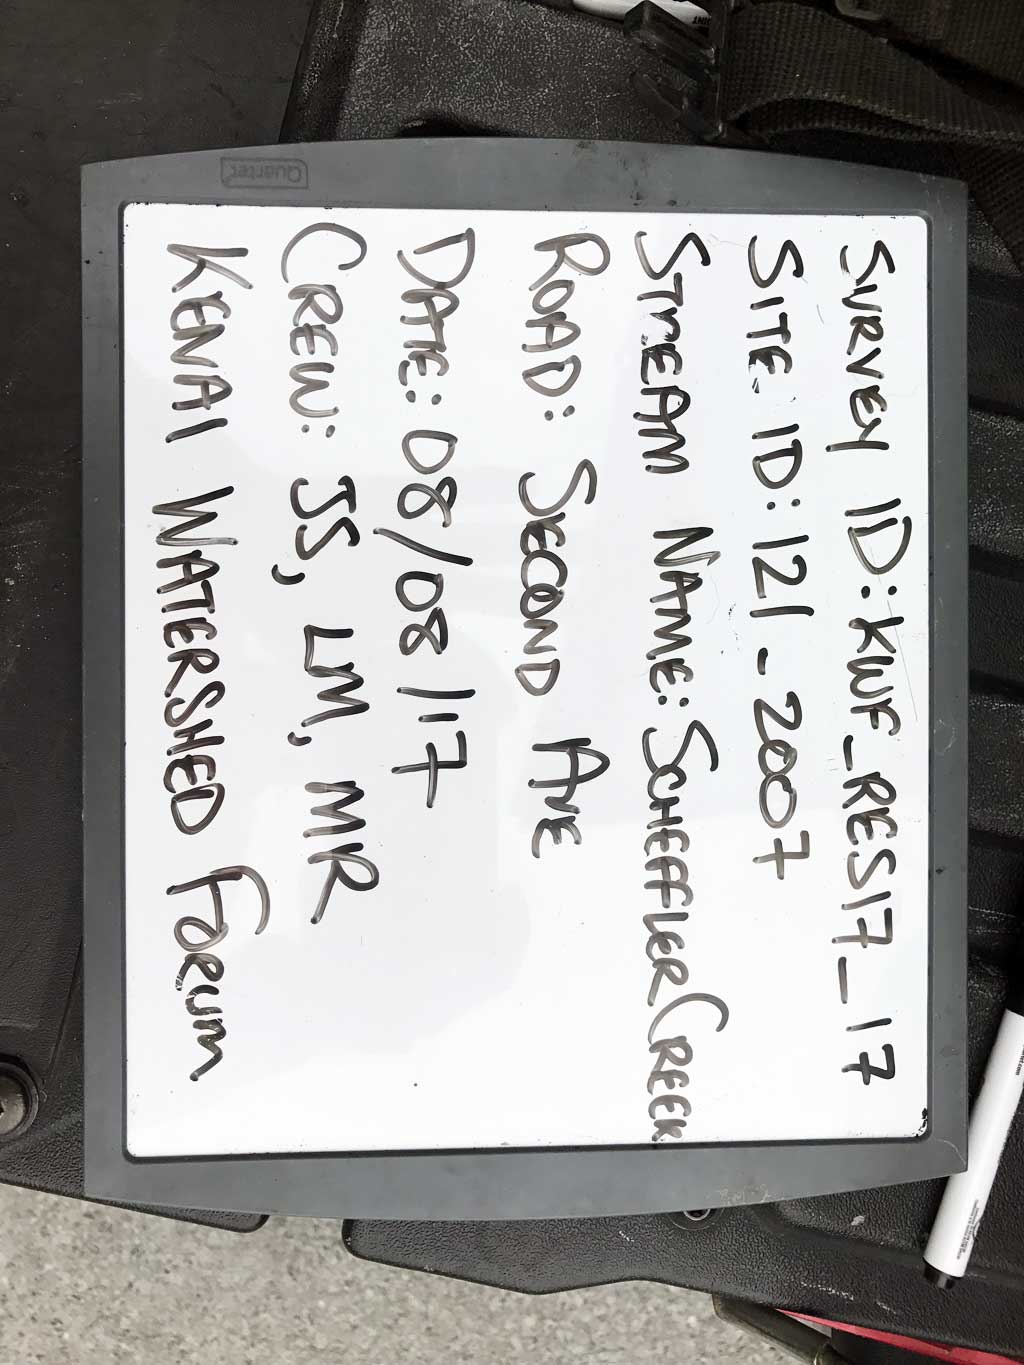 SURVEY ID: KWF_RES17_17
SITE ID: 121-2007
STREAM NAME: SCHEFFLER CREEK
ROAD: SECOND AVE
DATE: 08/08/17
CREW: JS, LM, MR
KENAI WATERSHED FORUM
Quartet